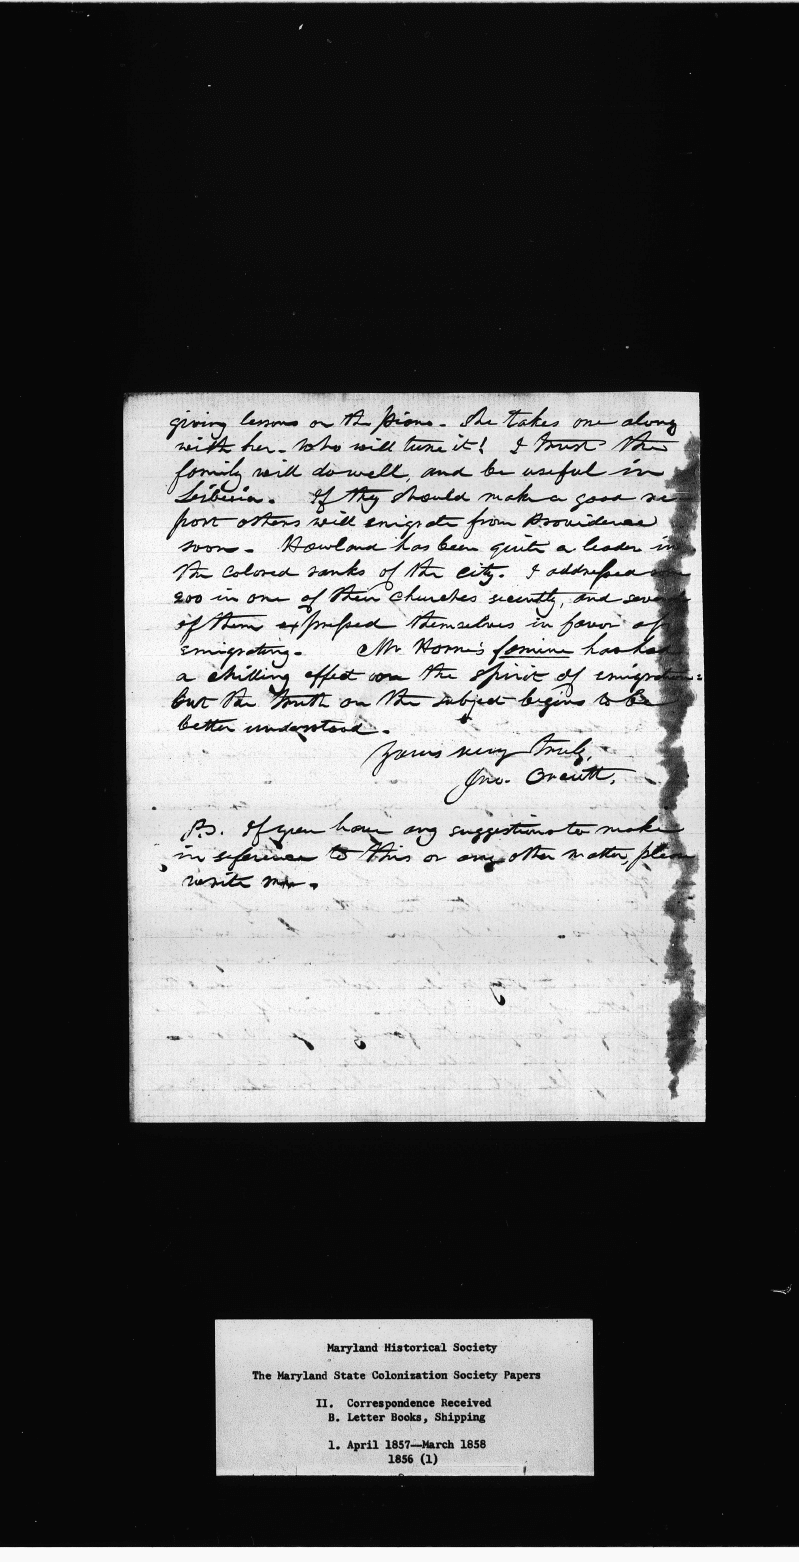 giving lessons on the piano. She takes one along
with her. Who will tune it! I trust the
family will do well, and be useful in
Liberia. If they should make a good re-
port others will emigrate from Providence
soon. Howland has been quite a leader in
the colored ranks of the city. I addressed
200 in one of their churches recently, and
of them expressed themselves in favor of
emigrating. Mr Horne's famine has had
a chilling effect on the spirit of emigration:
but the truth on the subject begins to be
better understood.
Yours very truly,
Jno. Orcutt.
P.S. If you have any suggestions to make
in reference to this or any other matter, please
write me.
Maryland Historical Society
The Maryland State Colonization Society Papers
II. Correspondence Received
B. Letter Books, Shipping
1. April 1857—March 1858
1856 (1)